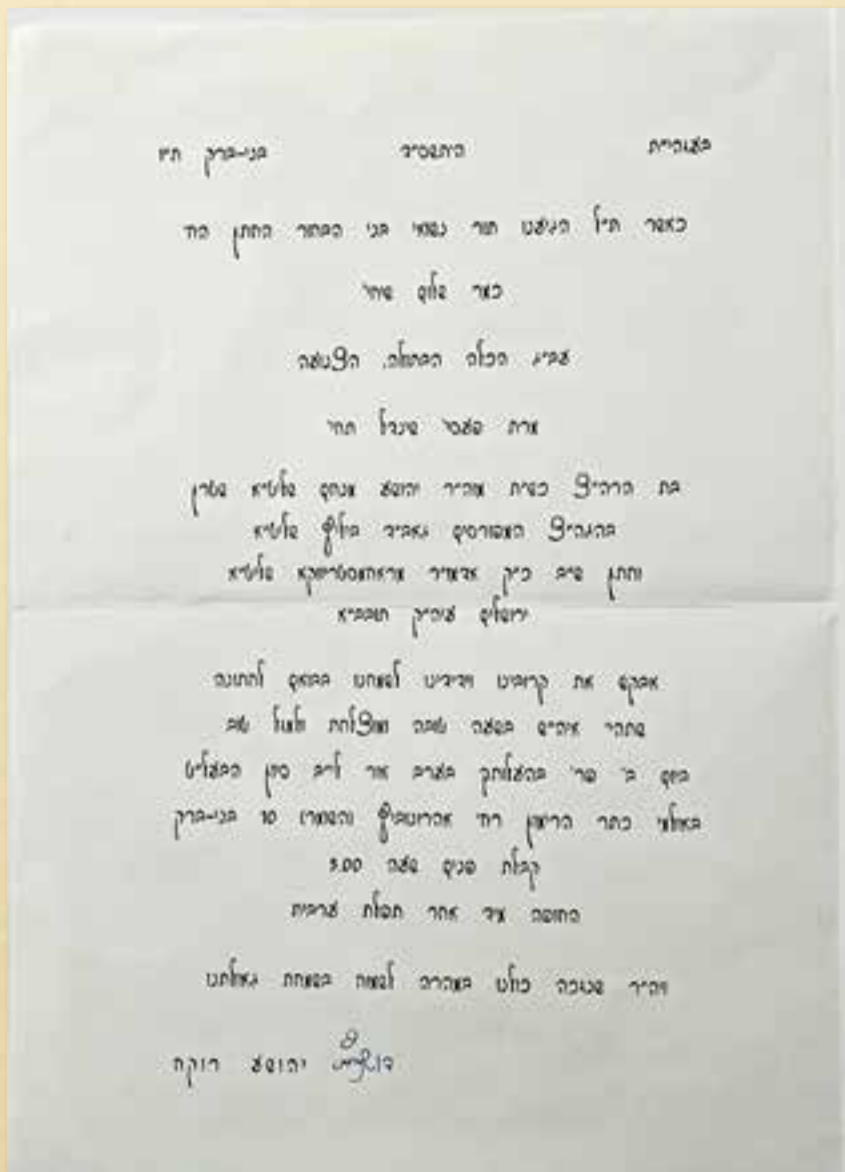 בעזהי"ת ה'תשס"ד בני-ברק ת"ו
כאשר ת"ל הגיענו תור נשואי בני הבחור החתן
כמר שלום שיחי'
עב"ג הכלה הבתולה, הצנועה
מרת פעסי' שינדל תחי'
בת הרה"צ כש"ת מוה"ר יהושע מנחם שליט"א שטרן
בהגה"צ המפורסים גאב"ד ביליץ שליט"א
וחתן ש"ב כ"ק אדמו"ר מראחמסטריווקא שליט"א
ירושלים עיה"ק תובב"א
אבקש את קרובינו וידידינו לשמחנו בבואם לחתונה
שתהי' אי"ה בשעה טובה ומוצלחת ולמזל טוב
ביום ב' פר' בהעלותך בערב אור לי"ב סיון הבעל"ט
באולמי כתר הרימון רח' אהרונוביץ (השומר) 10 בני-ברק
קבלת פנים שעה
החופה מיד אחר תפלת ערבית
ויה"ר שנזכה כולנו במהרה לשמוח בשמחת גאולתנו
יהושע רוקח